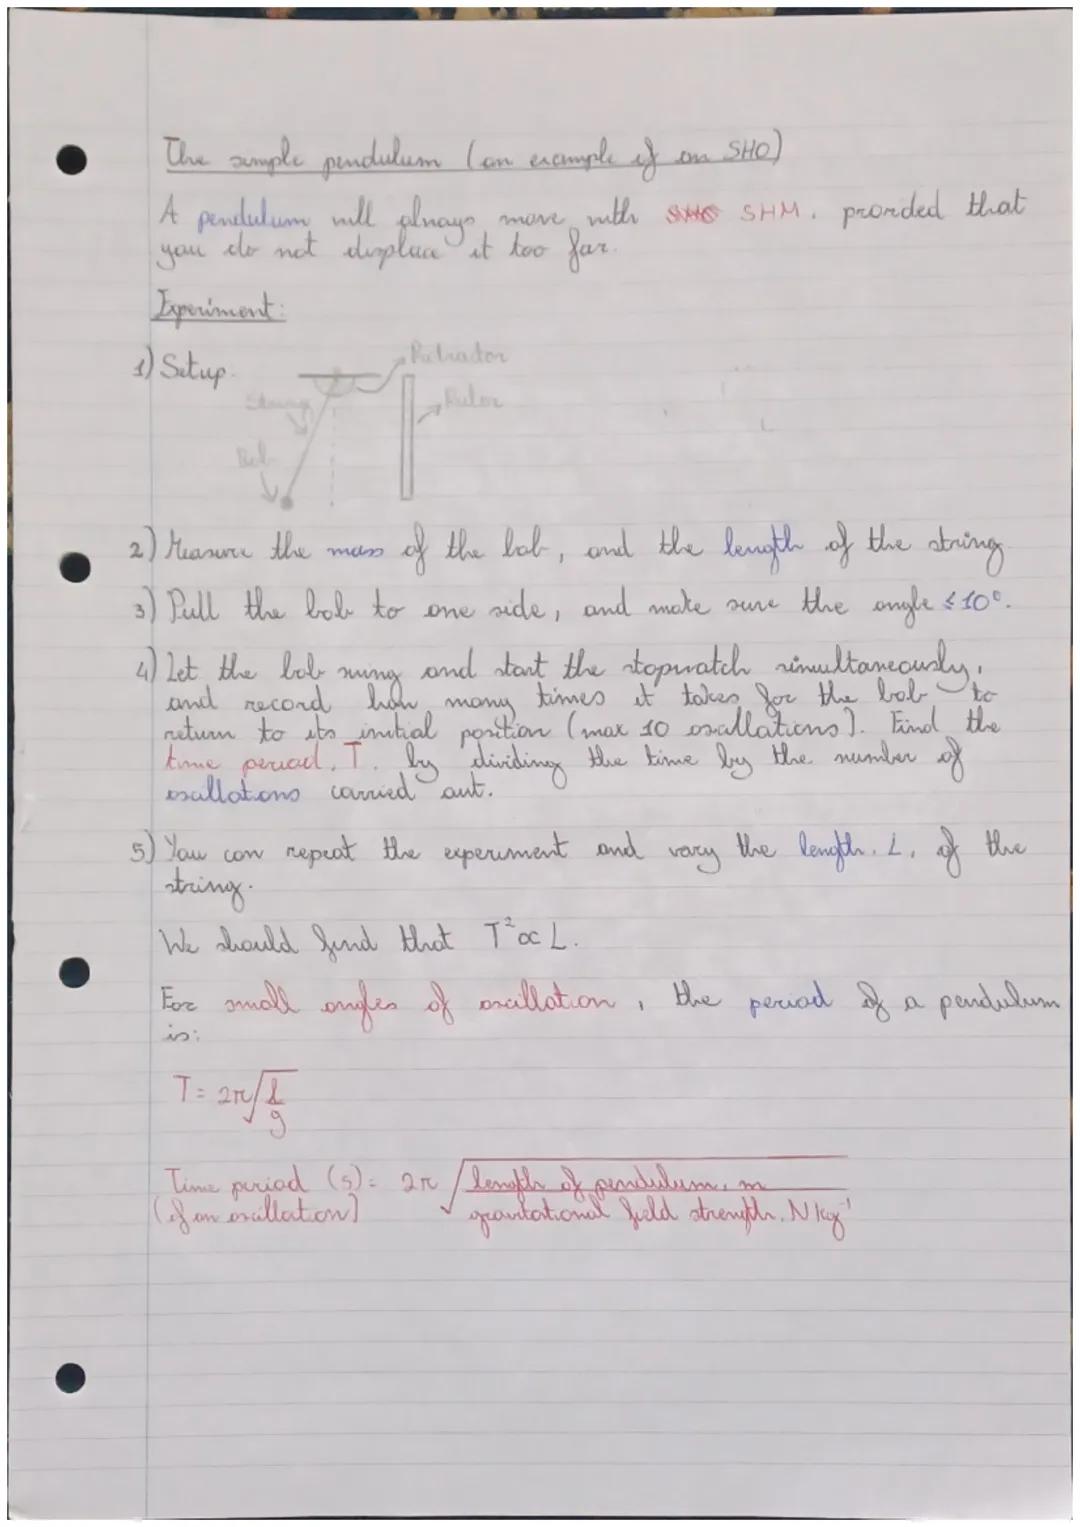 The simple pendulum (an example of an SHO)
A pendulum will always move with SHM, provided that
you do not displace it too far.
Experiment:
1) Setup.
Protractor
String
Ruler
Bob
2) Measure the mass of the bob, and the length of the string.
3) Pull the bob to one side, and make sure the angle ≤10°.
4) Let the bob swing and start the stopwatch simultaneously,
and record how many times it takes for the bob to
return to its initial position (max 10 oscillations). Find the
time period, T, by dividing the time by the number of
oscillations carried out.
5) You can repeat the experiment and vary the length, L, of the
string.
We should find that T² ∝ L.
For small angles of oscillation, the period of a pendulum
is:
T = 2π√(l/g)
Time period (s) = 2π √(length of pendulum, m / gravitational field strength, N kg⁻¹)
(of an oscillation)